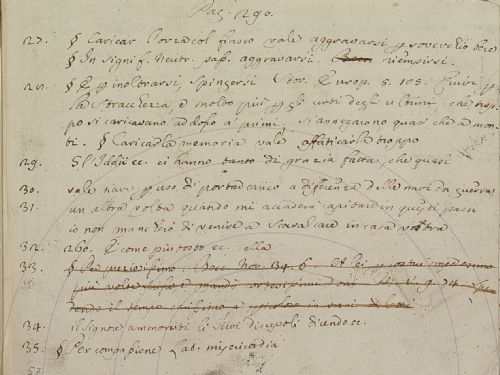 Pag. 290.
27. § Caricar l'orza col fiasco vale aggravarsi p soverchio bere
§ In signif. Neutr. pass. aggravarsi. riempirsi.
28. § E p inoltrarsi, Spingersi Stor. Europ. 5. 105.
la Stracchezza, e molto più p gli urti degli ultimi che
po si caricavano addosso a primi, si annegarono quasi che a mon
ti. § Caricar la memoria vale affaticarla troppo
29. Sl'Iddii ec. ci hanno tanto di grazia fatta, che quasi
30. vale nave p uso di portar carico a differenza delle navi da guerra
31. un altra volta quando mi accaderà capitar in questi paesi
io non mancherò di venire a Scavalcare in casa vostra
32. 260. E come piuttosto ec. ella
33. § Bocc. Nov. 34. 6. Et lei
più volte
tendo il tempo
34. il Signore ammonisce li suoi discepoli dicendo ec.
35. § Per compassione Lab. misericordia